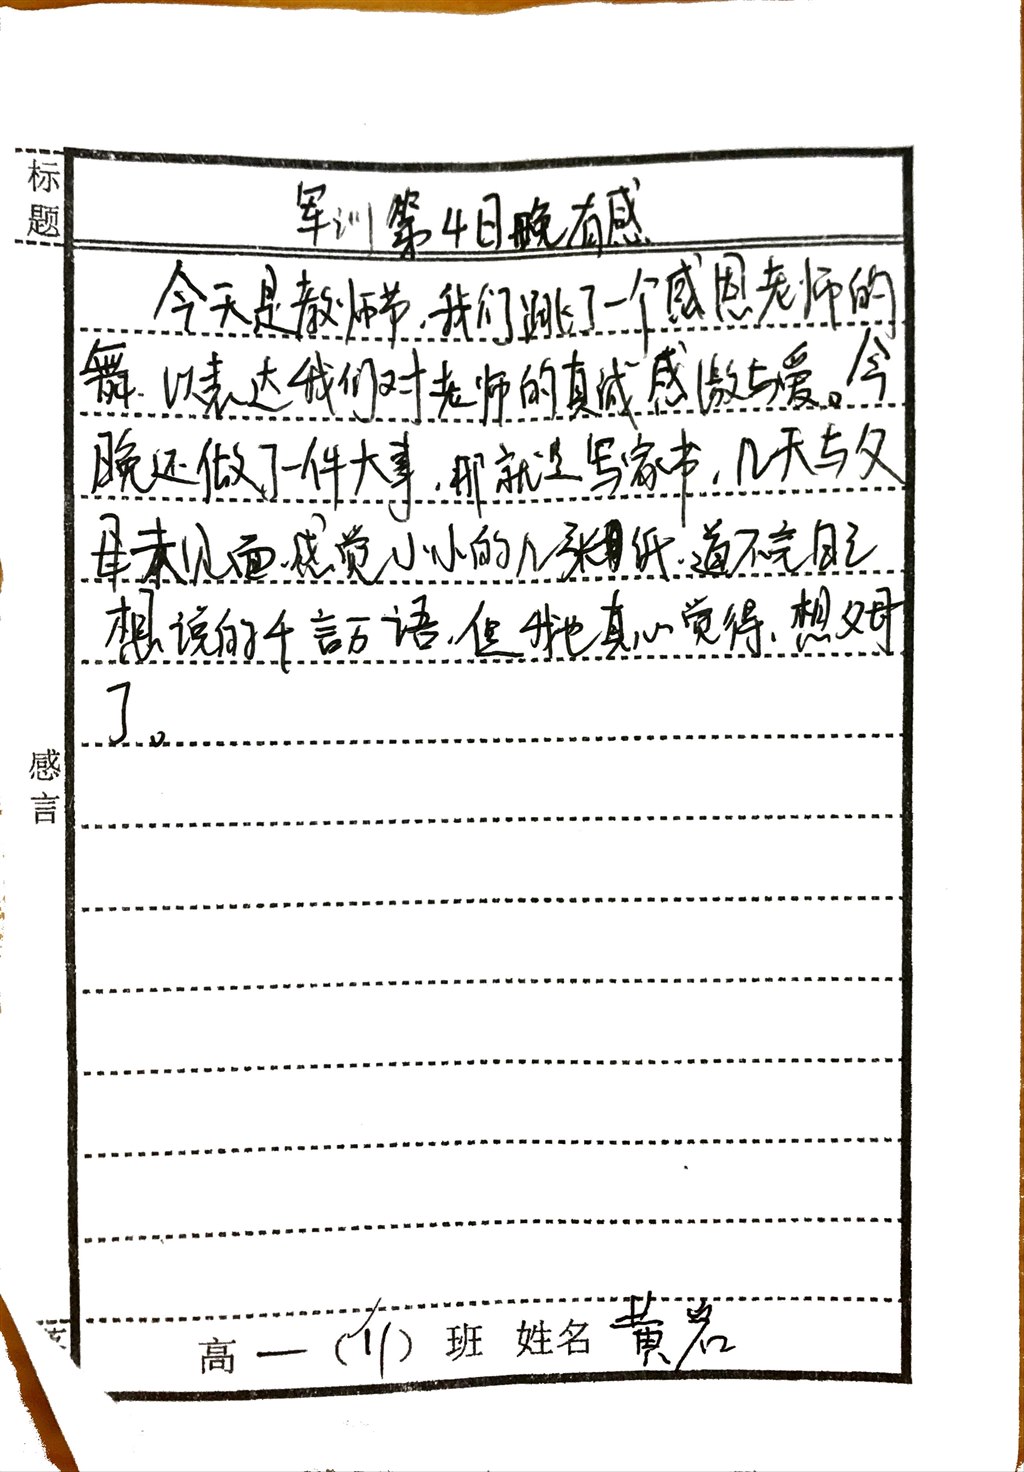 标题
军训第4日晚有感
今天是教师节,我们跳了一个感恩老师的
舞.以表达我们对老师的真诚感激与爱。今
晚还做了一件大事,那就是写家书,几天与父
母未见面.感觉小小的几张纸.道不完自己
想说的千言万语.但我也真心觉得,想父母
了。
感言
高一(11)班 姓名 黄岩